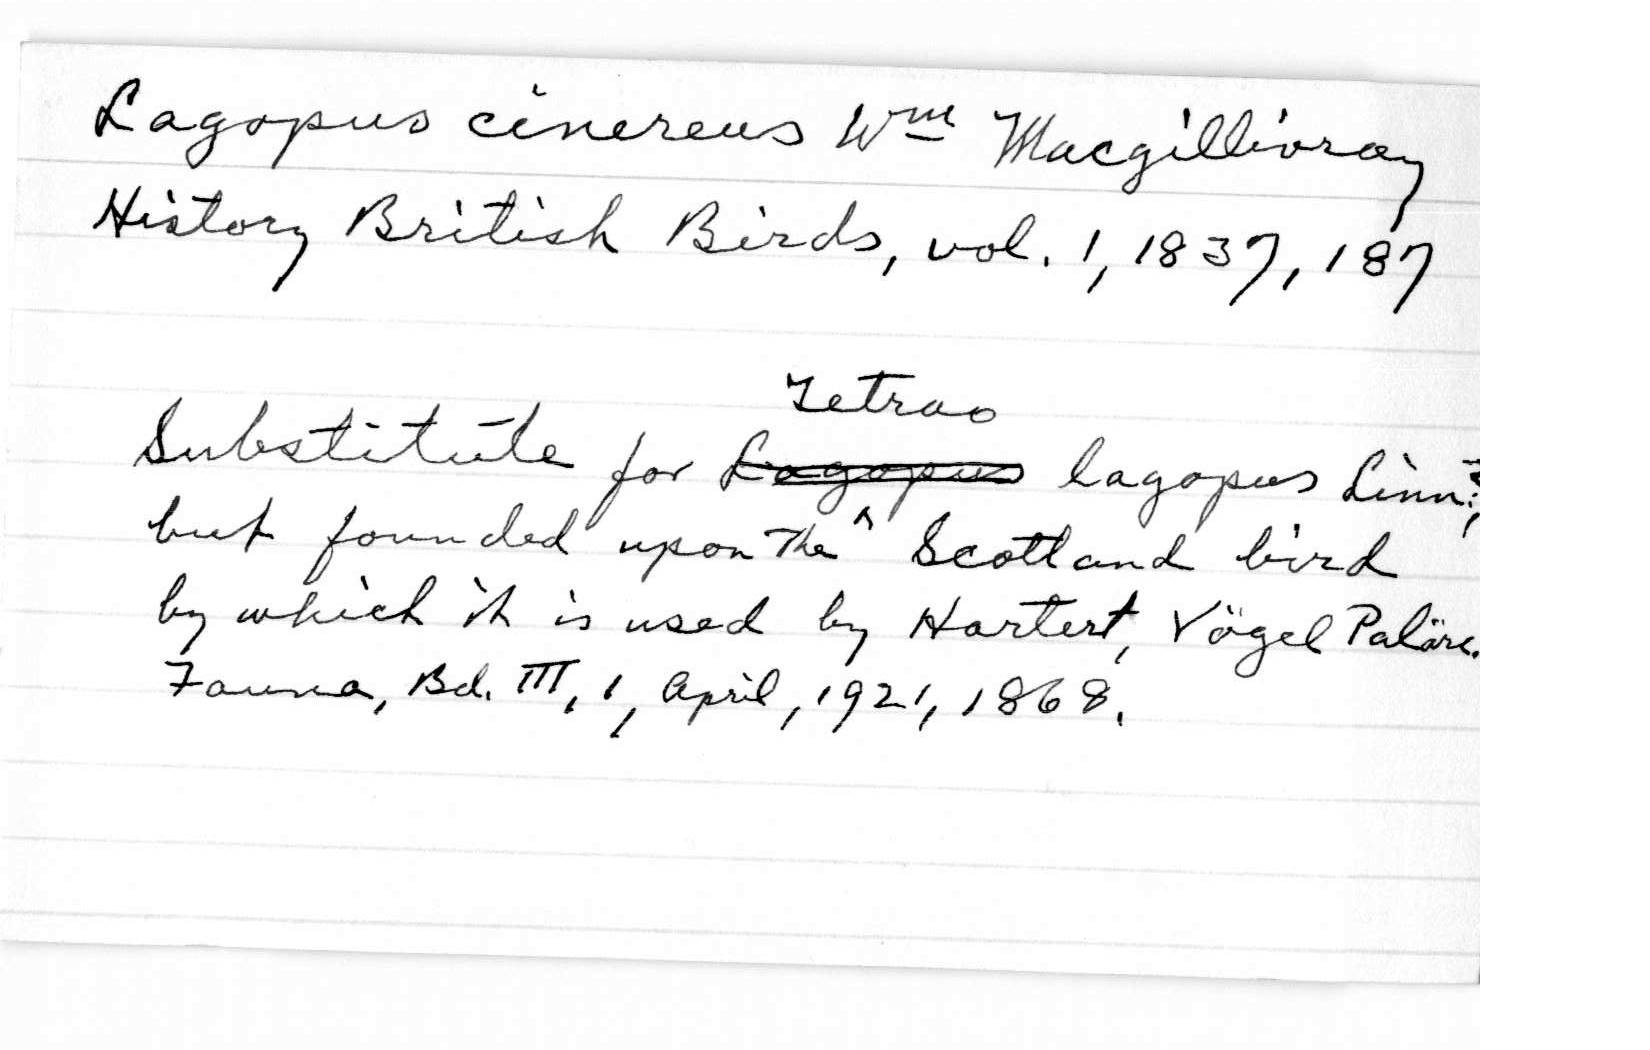 Lagopus cinereus Wm Macgillivray
History British Birds, vol. 1, 1837, 187
Tetrao
Substitute for Lagopus lagopus Linn.,
but founded upon the Scotland bird
by which it is used by Hartert, Vögel Paläre.
Fauna, Bd. III, 1, April, 1921, 1868.